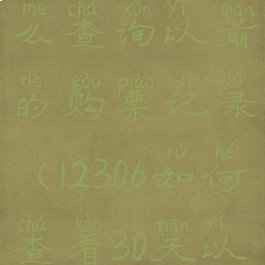 me chá xún yǐ qián
么查询以前
de gòu piào jì lù
的购票记录
rú hé
(12306如何
chá kàn tiān yǐ
查看30天以